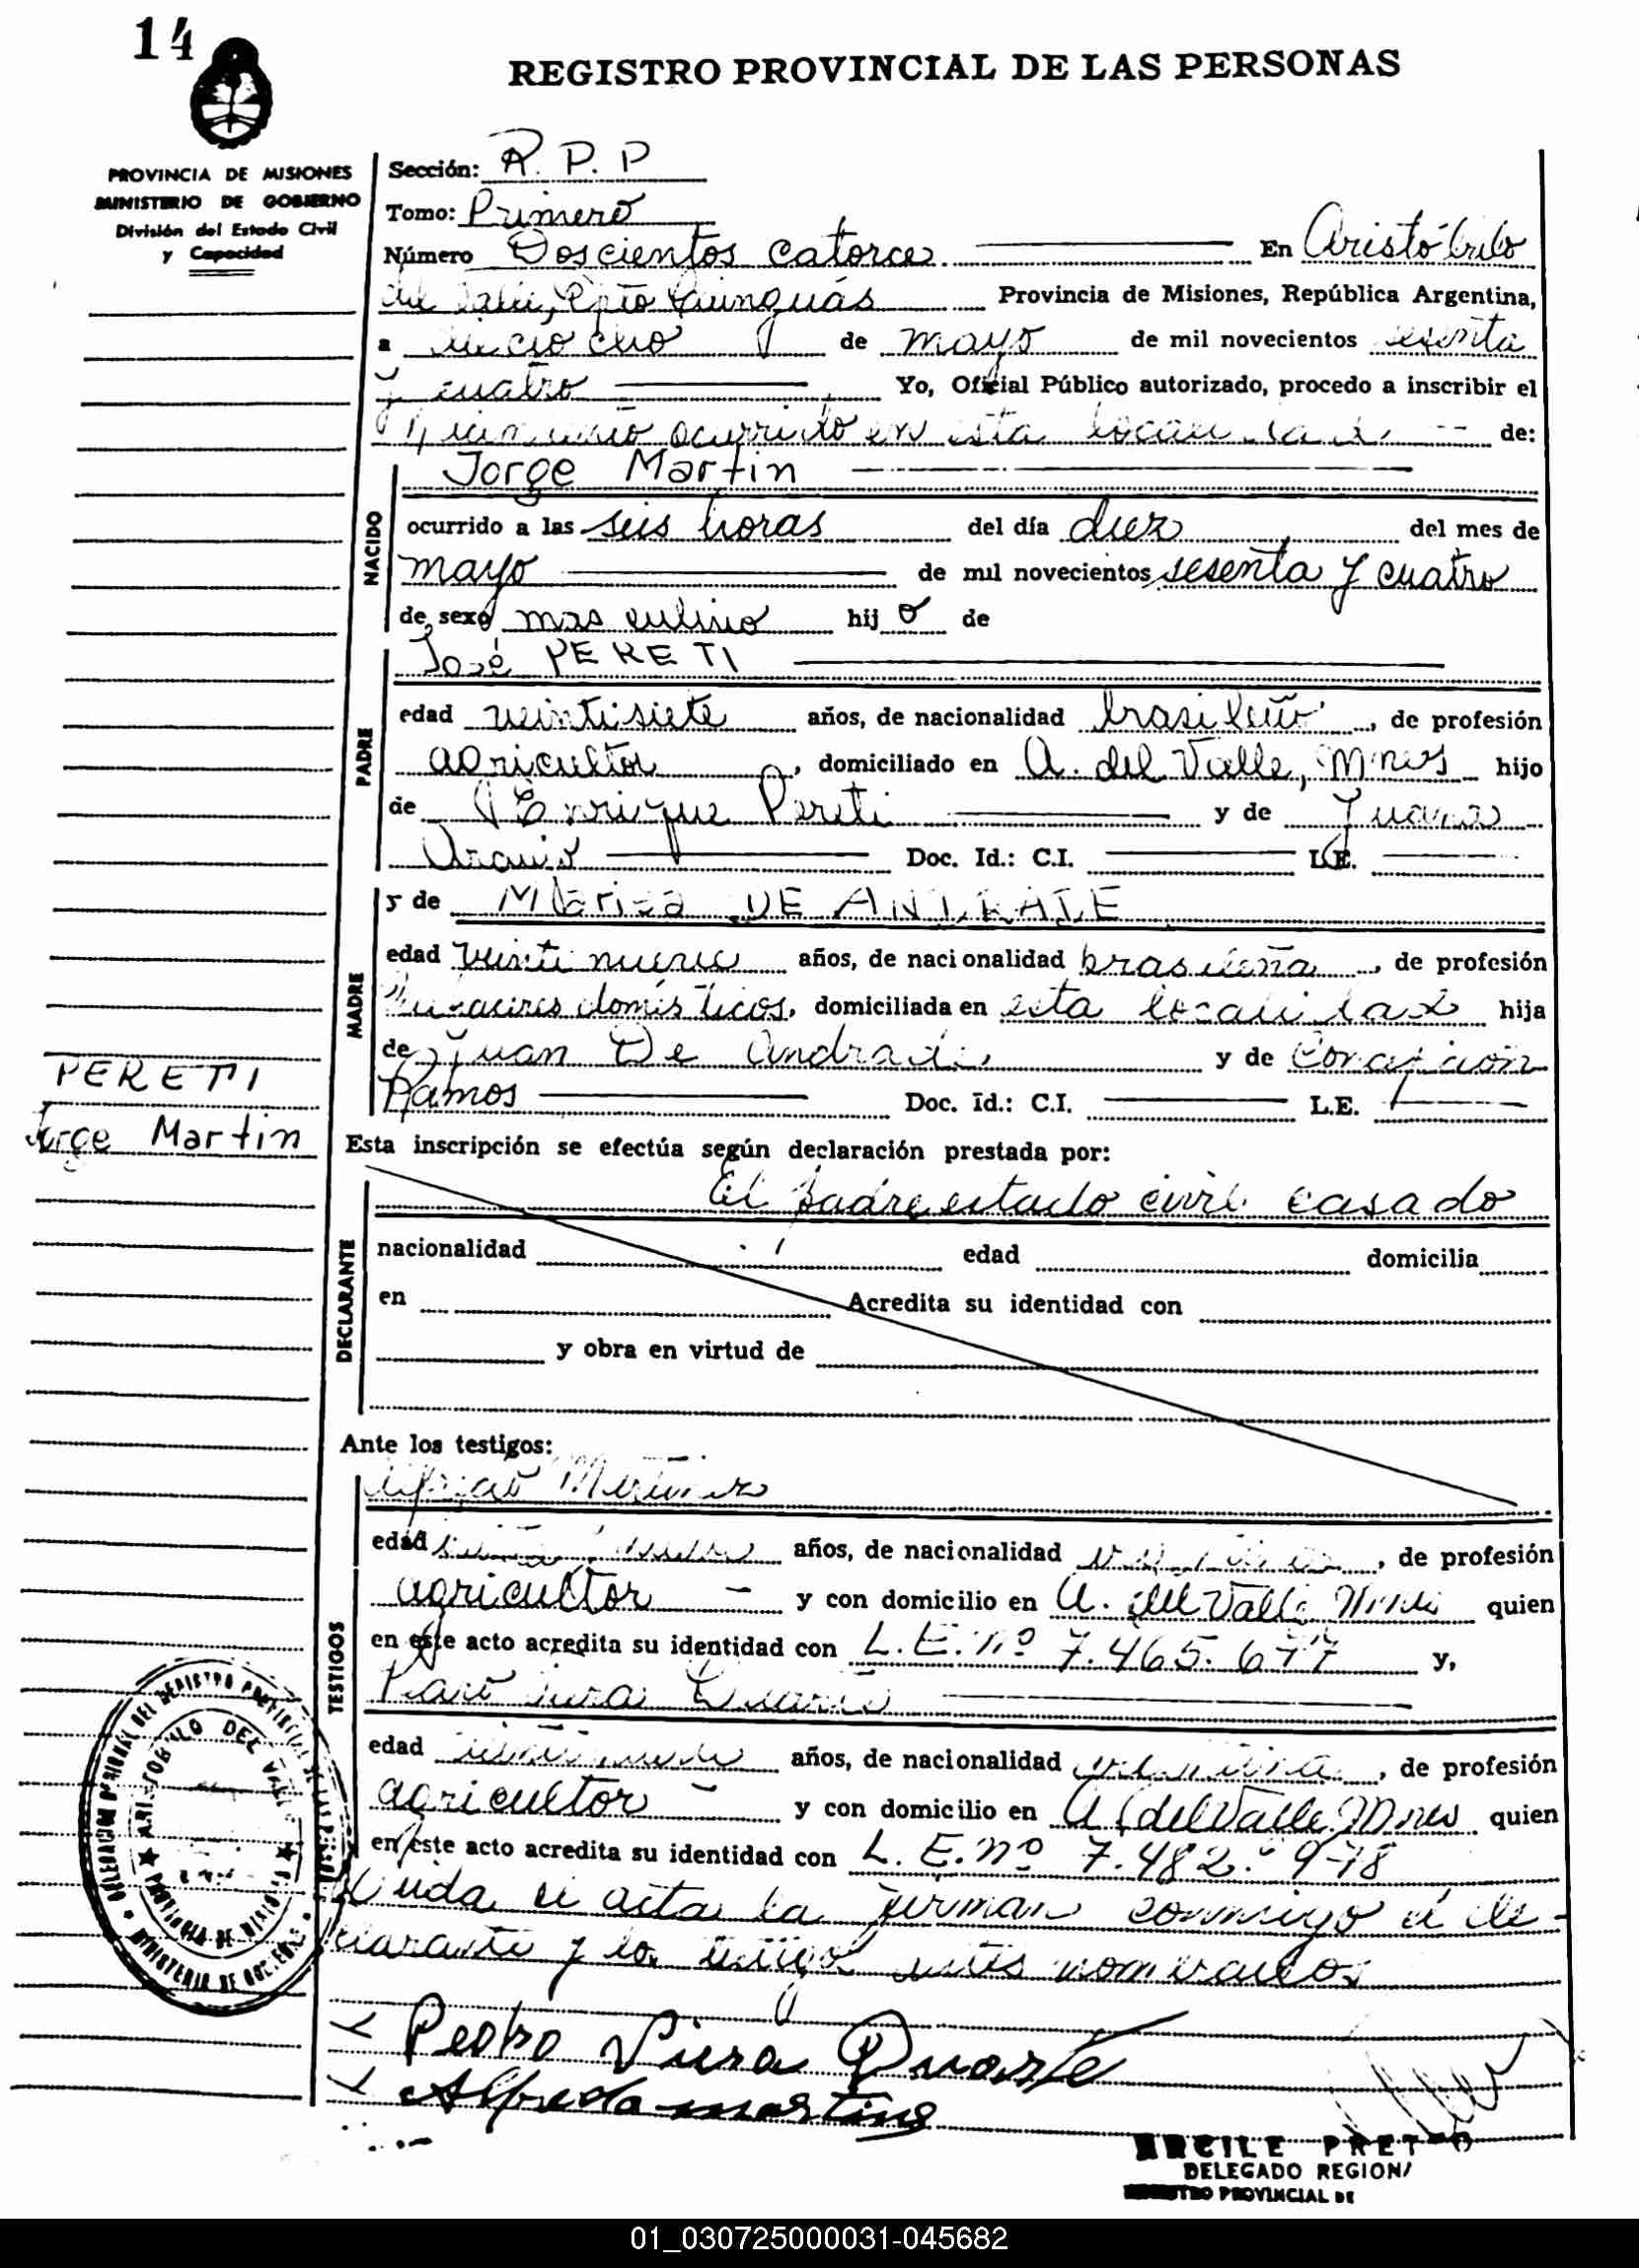 14
REGISTRO PROVINCIAL DE LAS PERSONAS
PROVINCIA DE MISIONES
MINISTERIO DE GOBIERNO
División del Estado Civil
y Capacidad
Sección: R. P. P
Tomo: Primero
Número Doscientos catorce En Aristóbulo
del Valle, Dpto Cainguás Provincia de Misiones, República Argentina,
a dieciocho de mayo de mil novecientos sesenta
y cuatro Yo, Oficial Público autorizado, procedo a inscribir el
Nacimiento ocurrido en esta localidad de:
Jorge Martin
NACIDO
ocurrido a las seis horas del día diez del mes de
mayo de mil novecientos sesenta y cuatro
de sexo masculino hij o de
José PERETI
PADRE
edad veintisiete años, de nacionalidad brasileño, de profesión
agricultor, domiciliado en A. del Valle, Mnes hijo
de Enrique Pereti y de Juana
Doc. Id.: C.I. L.E.
MADRE
y de Mariza DE ANDRADE
edad veintinueve años, de nacionalidad brasileña, de profesión
quehaceres domésticos, domiciliada en esta localidad hija
de Juan De Andrade y de Concepción
Ramos Doc. Id.: C.I. L.E.
PERETI
Jorge Martin
Esta inscripción se efectúa según declaración prestada por:
El padre estado civil casado
DECLARANTE
nacionalidad edad domicilia
en Acredita su identidad con
y obra en virtud de
Ante los testigos:
TESTIGOS
edad años, de nacionalidad, de profesión
agricultor y con domicilio en A. del Valle Mnes quien
en este acto acredita su identidad con L. E. nº 7.465.677 y,
edad años, de nacionalidad, de profesión
agricultor y con domicilio en A. del Valle Mnes quien
en este acto acredita su identidad con L. E. nº 7.482.978
Leida el acta la firman conmigo el de-
clarante y los testigos antes nombrados
Pedro Viera Duarte
Alfredo martins
DELEGADO REGION
PROVINCIAL DE
01_030725000031-045682